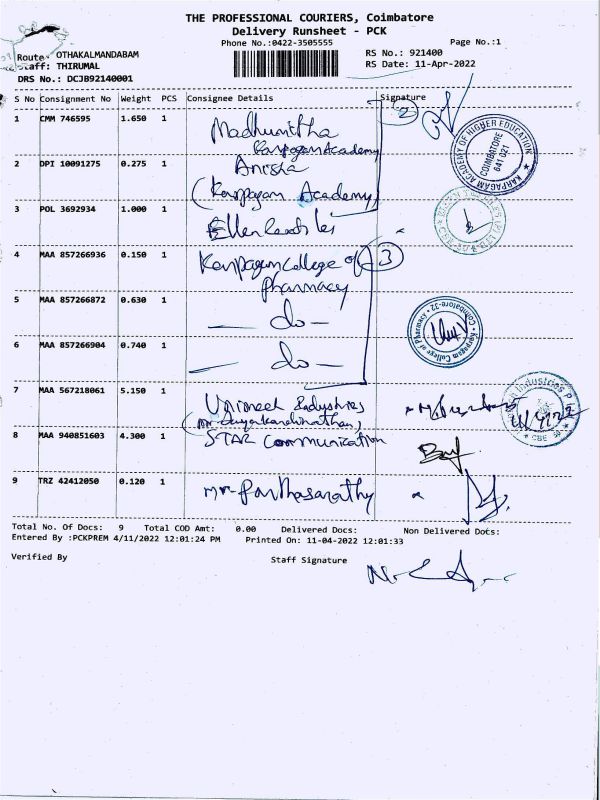 THE PROFESSIONAL COURIERS, Coimbatore
Delivery Runsheet - PCK
Phone No.:0422-3505555
Page No.:1
Route: OTHAKALMANDABAM
RS No.: 921400
Staff: THIRUMAL
RS Date: 11-Apr-2022
DRS No.: DCJB92140001
S No Consignment No Weight PCS Consignee Details Signature
1 CMM 746595 1.650 1 Madhumitha
Karpagam Academy
2
2 DPI 10091275 0.275 1 Anisha
(Karpagam Academy)
KARPAGAM ACADEMY OF HIGHER EDUCATION
COIMBATORE
641 021
3 POL 3692934 1.000 1
4 MAA 857266936 0.150 1 Karpagam College of
Pharmacy
3
5 MAA 857266872 0.630 1 — do —
6 MAA 857266904 0.740 1 — do —
Karpagam College of Pharmacy • Coimbatore-32
7 MAA 567218061 5.150 1
Industries
CBE
8 MAA 940851603 4.300 1 STAR Communication
9 TRZ 42412050 0.120 1 Mr. Parthasarathy
Total No. Of Docs: 9 Total COD Amt: 0.00 Delivered Docs: Non Delivered Docs:
Entered By :PCKPREM 4/11/2022 12:01:24 PM Printed On: 11-04-2022 12:01:33
Verified By Staff Signature